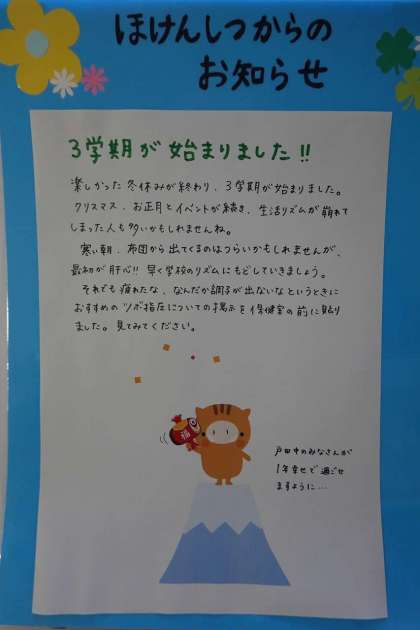 ほけんしつからの
お知らせ
3学期が始まりました!!
楽しかった冬休みが終わり、3学期が始まりました。
クリスマス、お正月とイベントが続き、生活リズムが崩れて
しまった人も多いかもしれませんね。
寒い朝、布団から出てくるのはつらいかもしれませんが、
最初が肝心!!早く学校のリズムにもどしていきましょう。
それでも疲れたな、なんだか調子が出ないなというときに
おすすめのツボ指圧についての掲示を保健室の前に貼り
ました。見てみてください。
福
戸田中のみなさんが
1年幸せで過ごせ
ますように…